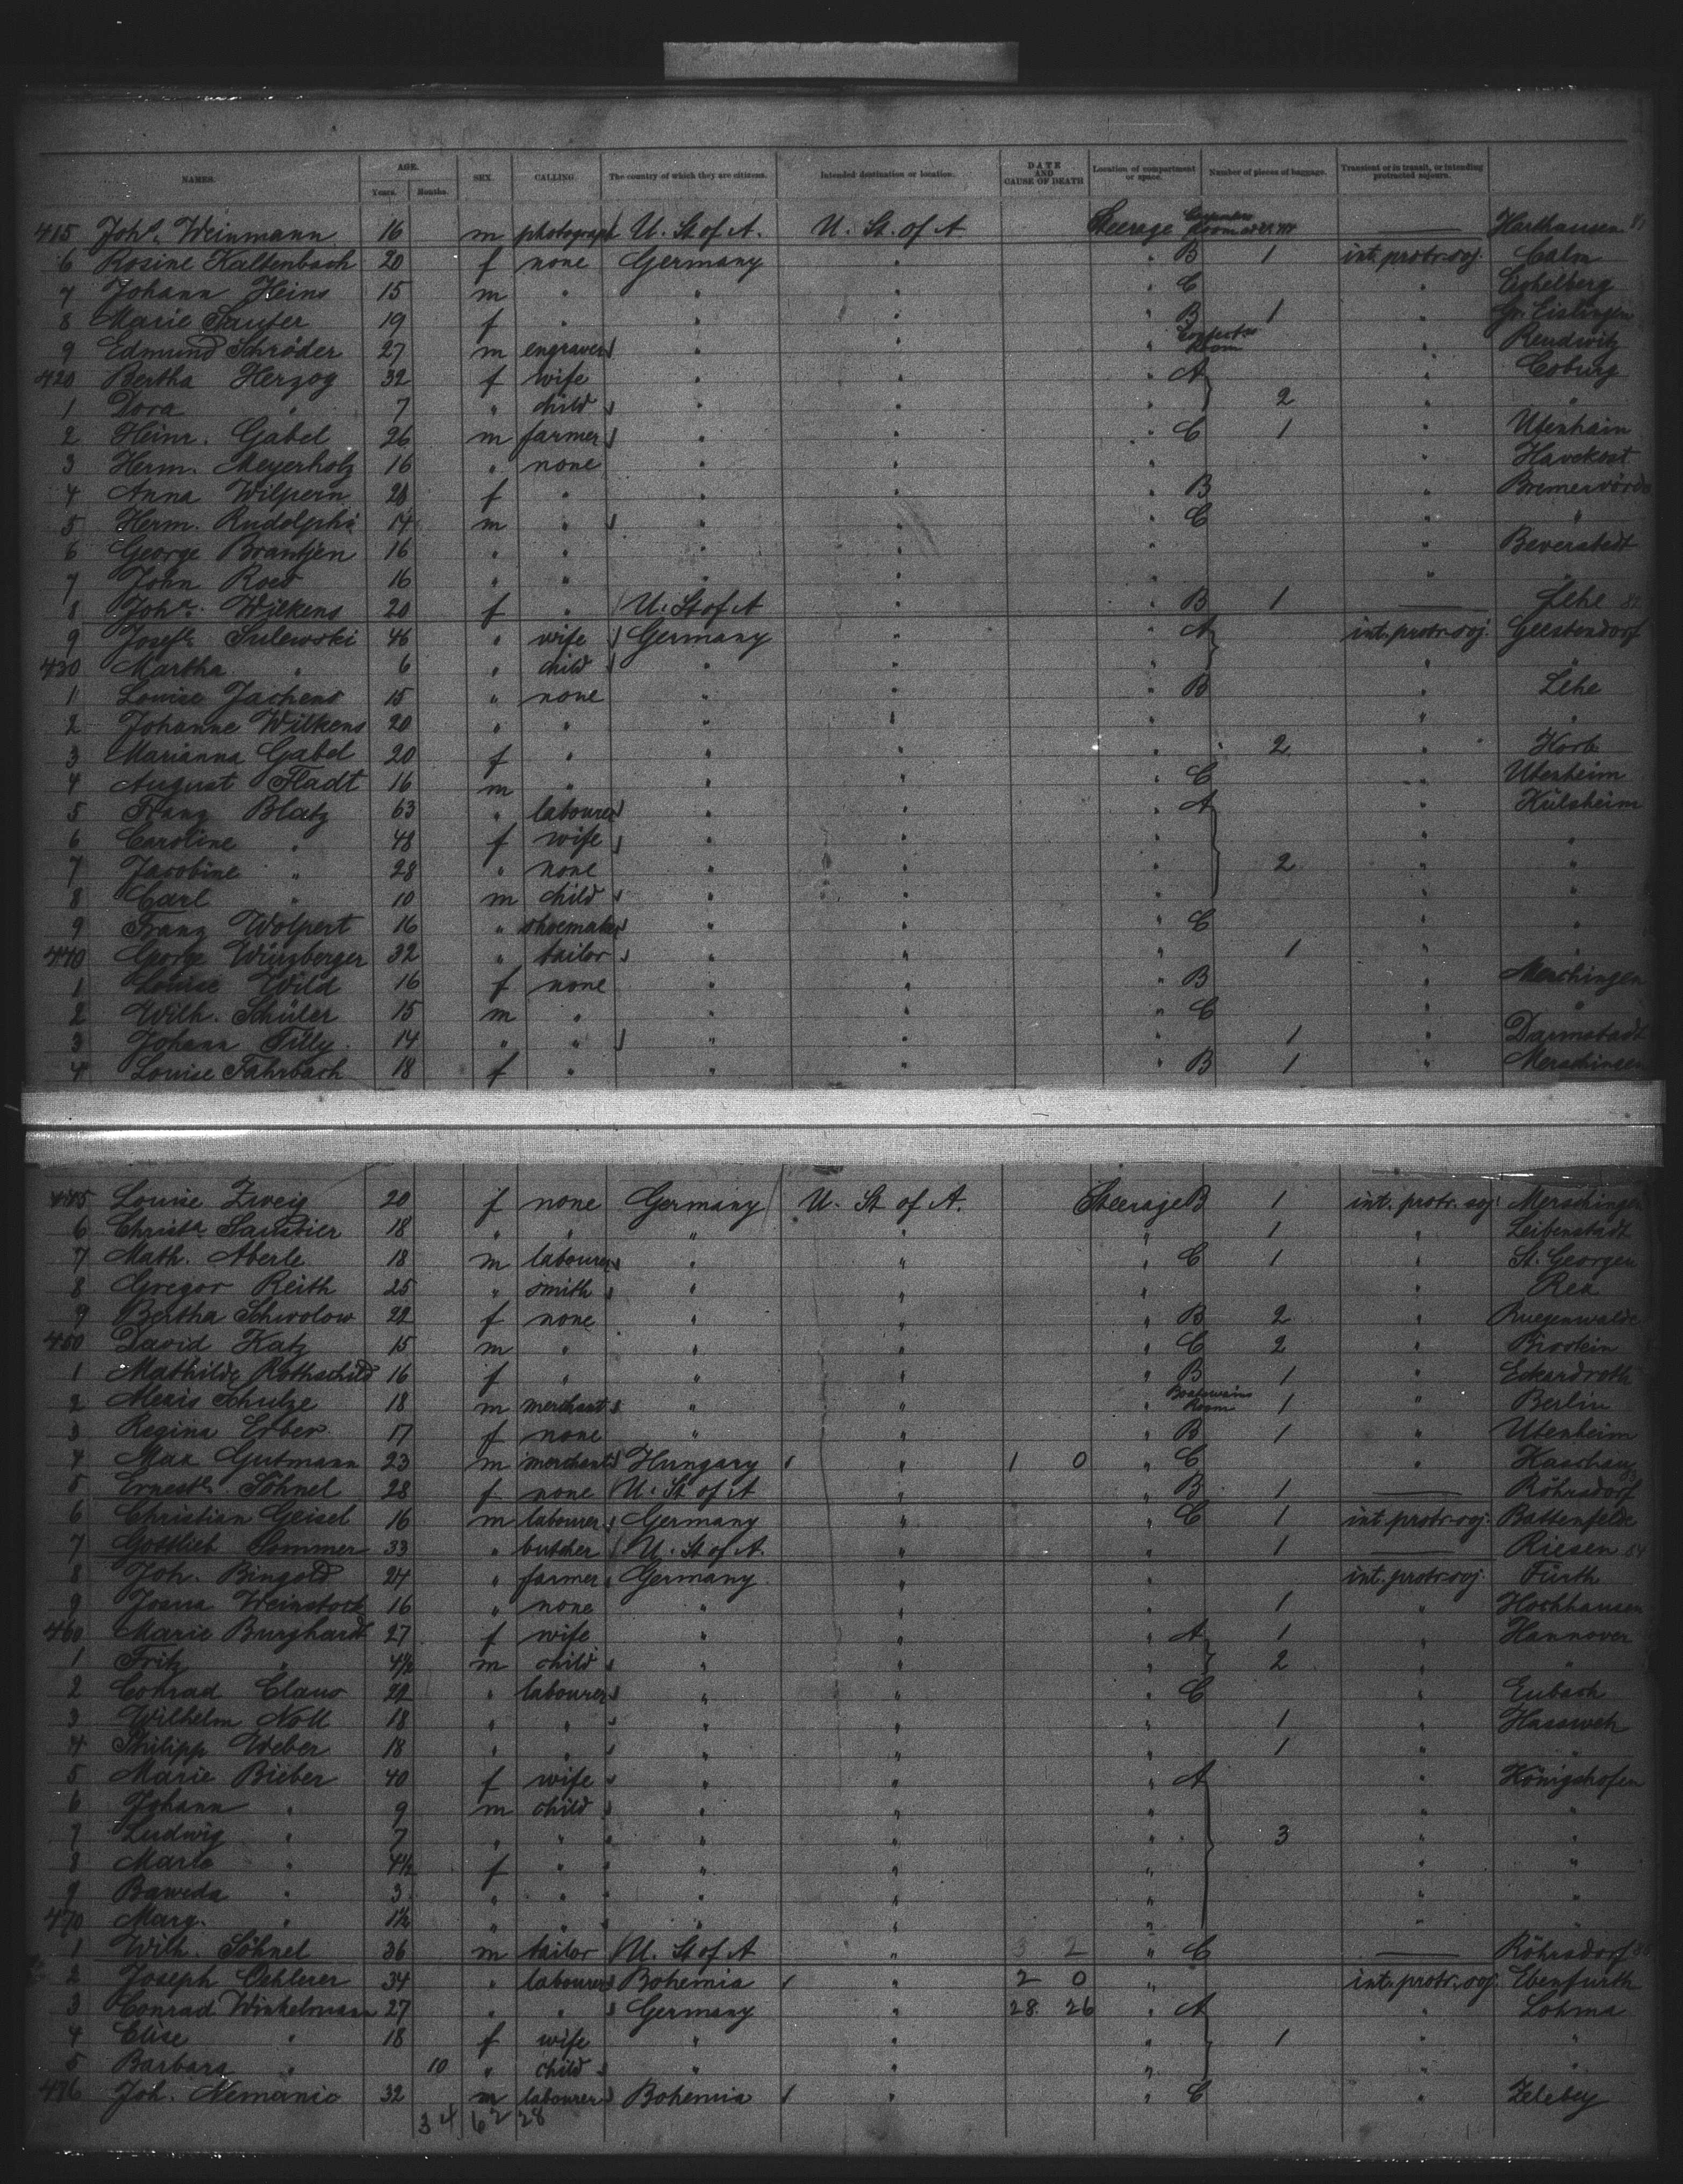 NAMES. AGE. Years. Months. SEX. CALLING. The country of which they are citizens. Intended destination or location. DATE AND CAUSE OF DEATH Location of compartment or space. Number of pieces of baggage. Transient or in transit, or intending protracted sojourn.
415 Joh. Weinmann 16 m photograph U. St. of A. U. St. of A. Steerage Room — Harthausen
6 Rosine Kaltenbach 20 f none Germany " " B 1 int. protr. soj. Calm
7 Johann Heins 15 m " " " " C "
8 Marie Saufer 19 f " " " " B 1 " Gr. Eislingen
9 Edmund Schröder 27 m engraver " " " Room " Reudwitz
420 Bertha Herzog 32 f wife " " " A " Coburg
1 Dora " 7 " child " " " 2 " "
2 Heinr. Gabel 26 m farmer " " " C 1 " Utenhain
3 Herm. Meyerholz 16 " none " " " " Havekost
4 Anna Wilpern 20 f " " " " B " Bremervörde
5 Herm. Rudolphi 14 m " " " " C " "
6 George Brantjen 16 " " " " " " Beverstedt
7 John Roes 16 " " " " " " "
8 Joh. Wilkens 20 f " U. St of A " " B 1 — Lehe
9 Josef. Sulewski 46 " wife Germany " " A int. protr. soj. Geestendorf
430 Martha " 6 " child " " " " "
1 Louise Jachens 15 " none " " " B " Lehe
2 Johanne Wilkens 20 " " " " " " "
3 Marianna Gabel 20 f " " " " " 2 " Korb
4 August Fladt 16 m " " " " C " Utenheim
5 Franz Blatz 63 " labourer " " " A " Külsheim
6 Caroline " 48 f wife " " " " "
7 Jacobine " 28 " none " " " 2 " "
8 Carl " 10 m child " " " " "
9 Franz Wolpert 16 " shoemaker " " " C " "
440 George Würzberger 32 " tailor " " " 1 " "
1 Louise Wild 16 f none " " " B " Merchingen
2 Wilh. Schüler 15 m " " " " C " "
3 Johann Tilly 14 " " " " " 1 " Darmstadt
4 Louise Fahrbach 18 f " " " " B 1 " Merschingen
445 Louise Zweig 20 f none Germany U. St of A. Steerage B 1 int. protr. soj. Merschingen
6 Christ. 18 " " " " " 1 " Leibenstadt
7 Math. Aberle 18 m labourer " " " C 1 " St. Georgen
8 Gregor Reith 25 " smith " " " " Rea
9 Bertha Schwolow 22 f none " " " B 2 " Ruegenwalde
450 David Katz 15 m " " " " C 2 "
1 Mathilde Rothschild 16 f " " " " B 1 " Eckardroth
2 Alexis Schulze 18 m merchant " " " Boatswains Room 1 " Berlin
3 Regina Erber 17 f none " " " B 1 " Utenheim
4 Max Gutmann 23 m merchant Hungary " 1 0 " C " Kaschau
5 Ernest. Söhnel 28 f none U. St of A " " B 1 — Röhrsdorf
6 Christian Geisel 16 m labourer Germany " " C 1 int. protr. soj. Battenfelde
7 Gottlieb Sommer 33 " butcher U. St of A. " " 1 — Riesen 84
8 Joh. Bingold 24 " farmer Germany " " int. protr. soj. Fürth
9 Weinstock 16 " none " " " 1 " Hochhausen
460 Marie Burghardt 27 f wife " " " A 1 " Hannover
1 Fritz " 4½ m child " " " 2 " "
2 Conrad Claus 22 " labourer " " " C " Eubach
3 Wilhelm Noll 18 " " " " " 1 "
4 Philipp Weber 18 " " " " " 1 " "
5 Marie Bieber 40 f wife " " " A " Königshofen
6 Johann " 9 m child " " " " "
7 Ludwig " 7 " " " " " 3 " "
8 Marie " 4½ f " " " " " "
9 " 3 " " " " " " "
470 Marg. " 1½ " " " " " " "
1 Wilh. Söhnel 36 m tailor U. St of A " 3 2 " C — Röhrsdorf
2 Joseph Oehlerer 34 " labourer Bohemia " 2 0 " int. protr. soj. Ebenfurth
3 Conrad Winkelmann 27 " " Germany " 28 26 " A " Lohma
4 Elise " 18 f wife " " " 1 " "
5 Barbara " 10 " child " " " " "
476 Joh. Nemanic 32 m labourer Bohemia " " C "
34 62 28